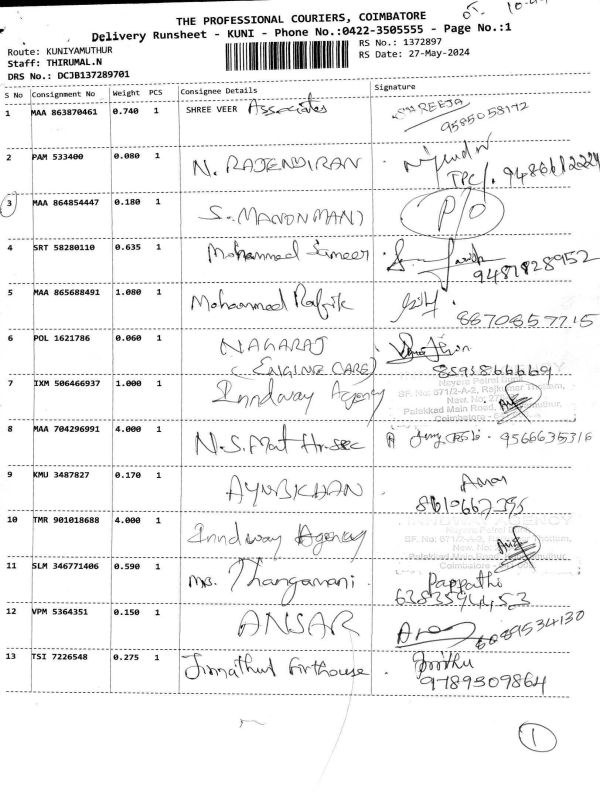 THE PROFESSIONAL COURIERS, COIMBATORE
Delivery Runsheet - KUNI - Phone No.:0422-3505555 - Page No.:1
Route: KUNIYAMUTHUR
RS No.: 1372897
Staff: THIRUMAL.N
RS Date: 27-May-2024
DRS No.: DCJB137289701
S No Consignment No Weight PCS Consignee Details Signature
1 MAA 863870461 0.740 1 SHREE VEER Associates SHREEJA
9585058172
2 PAM 533400 0.080 1 N. RAJENDIRAN
TPC/. 9486612224
3 MAA 864854447 0.180 1 S. MANONMANI P/O
4 SRT 58280110 0.635 1 Mohammed Sameer
9487828952
5 MAA 865688491 1.080 1 Mohammed Rafik
8870857715
6 POL 1621786 0.060 1 NAGARAJ
(ENGINE CARE) 8595866669
7 IXM 506466937 1.000 1 Inndway Agency
Nayara Petrol Bunk
SF. No: 671/2-A-2, Rajkumar Thottam,
Palakkad Main Road,
Coimbatore
8 MAA 704296991 4.000 1 N.S. Mat Hr. Sec 9566635316
9 KMU 3487827 0.170 1 AYUBKHAN
10 TMR 901018688 4.000 1 Inndway Agency
SF. No: 671/2-A-2,
Coimbatore
11 SLM 346771406 0.590 1 Mrs. Thangamani Pappathi
12 VPM 5364351 0.150 1 ANSAR
13 TSI 7226548 0.275 1 Jinnathul Firthouse
9789309864
1